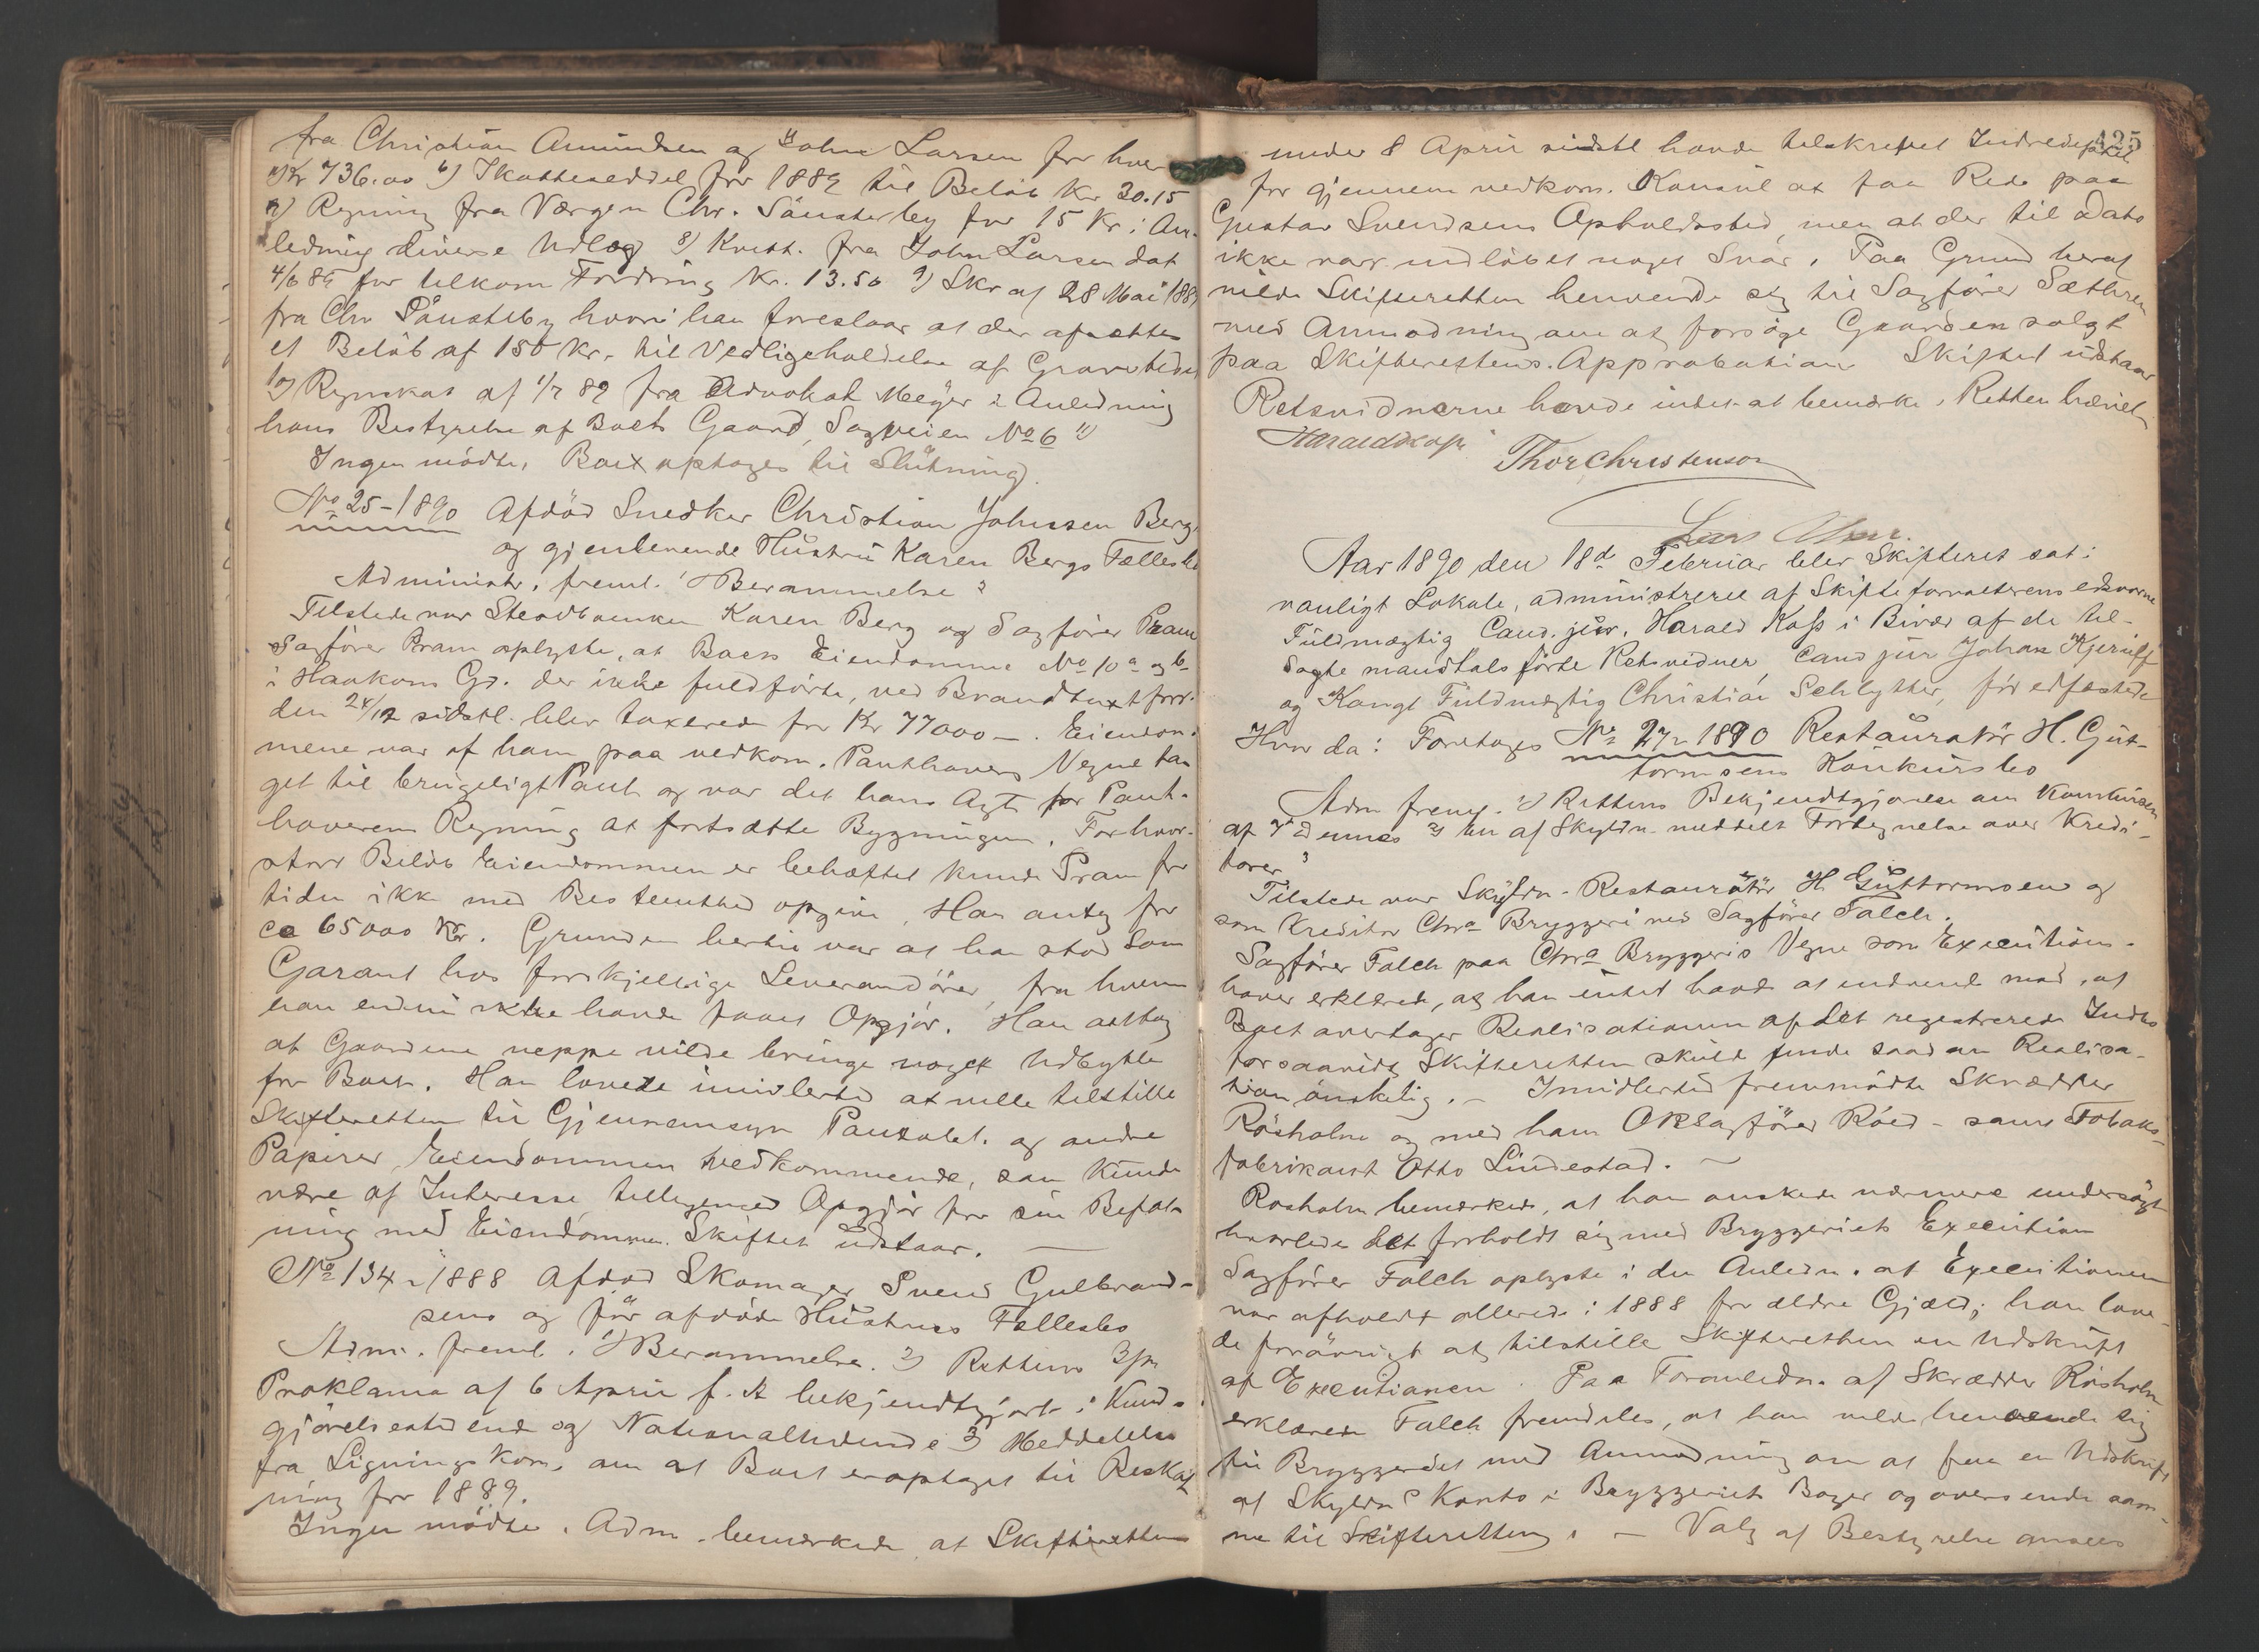 fra Christian Amundsen og John Larsen for hver
Kr 736.00 6) Skatteseddel for 1889 til Beløb Kr 30.15
7) Regning fra Værgen Chr. Sönsterby for 15 Kr. i An-
ledning diverse Udlæg 8) Kvitt. fra John Larsen dat
4/6 89 for tilkom Fordring Kr. 13.50 9) Skr af 28 Mai 1889
fra Chr Sönsteby hvori han foreslaar at der afsættes
et Beløb af 150 Kr. til Vedligeholdelse af Gravstedet
10) Regnskab af 1/7 89 fra Advokat Meÿer i Anledning
hans Bestyrelse af Boets Gaard, Sagveien No 6
Ingen mödte, Boet optages til Slutning.
No 25-1890 Afdöd Snedker Christian Johnsen Berg
og gjenlevende Hustru Karen Bergs Fællesbo
Administr. freml. 1) Berammelse
Tilstede var Stervboenken Karen Berg og Sagförer Pram
Sagförer Pram oplyste, at Boets Eiendomme No 10 a og b
i Haakons Gd. der ikke fuldförte, ved Brandtaxt forr.
den 24/12 sidstl. blev taxeret for Kr 77000 —. Eiendom-
mene var af ham paa vedkom. Panthavers Vegne ta-
get til brugeligt Pant og var det hans Agt for Pant-
haverens Regning at fortsætte Bygningen. For hvor-
stort Belöb Eiendommen er behæftet kunde Pram for
tiden ikke med Bestemthed opgive. Han antog for
ca 65000 Kr. Grunden hertil var at han stod som
Garant hos forskjellige Leverandörer, fra hvem
han endnu ikke havde faaet Opgjör. Han antog
at Gaardene neppe vilde bringe noget Udbytte
for Boet. Han lovede imidlertid at ville tilstille
Skifteretten til Gjennemsyn Pantobl. og andre
Papirer, Eiendommen vedkommende, som kunde
være af Interesse tilligemed Opgjör for sin Befat-
ning med Eiendommen. Skiftet udstaar. —
No 134-1888 Afdöd Skomager Svend Gulbrand-
sens og för afdöde Hustrues Fællesbo
Adm. freml. 1) Berammelse. 2) Rettens
Proklama af 6 April f. A bekjendtgjort i Kund-
gjörelsestidende og Nationaltidende 3) Meddelelse
fra Ligningskom. om at Boet er optaget til Beskat-
ning for 1889.
Ingen mödte. Adm. bemærkede at Skifteretten
125
under 8 April sidstl havde tilskrevet Indredepttet
for gjennem vedkom. Konsul at faa Rede paa
Gustav Svendsens Opholdssted, men at der til Dato
ikke var indlöbet noget Svar. Paa Grund heraf
vilde Skifteretten henvende sig til Sagförer Sæthren
med Anmodning om at forsöge Gaarden solgt
paa Skifterettens Approbation Skiftet udstaar
Retsvidnerne havde intet at bemærke. Retten hævet
Harald Kaß
Thor Christenson
Aar 1890 den 18d Februar blev Skifteret sat i
vanligt Lokale, administreret af Skifteforvalterens edsvorne
Fuldmægtig Cand. jur. Harald Kaß i Bivær af de til-
sagte mandtalsförte Retsvidner, Cand jur Johan Kjerulf
og Kongl Fuldmægtig Christian Schlytter, för edfæstede
Hvor da: Foretages No 27-1890 Restauratör H. Gut-
tormsens Konkursbo
Adm freml. 1) Rettens Bekjendtgjörelse om Konkursen
af 7 dennes 2) En af Skyldn. meddelt Fortegnelse over Kredi-
torer
Tilstede var Skyldn.-Restauratör H. Guttormsen og
som Kreditor Chra Bryggeri ved Sagförer Falch.
Sagförer Falch paa Chra Bryggeris Vegne som Executions-
haver erklærede, at han intet havde at indvende mod, at
Boet overtager Realisationen af det registrerede Indbo
forsaavidt Skifteretten skulde finde saadan Realisa-
tion önskelig. — Imidlertid fremmödte Skrædder
Rösholm og med ham ORSagförer Röed - samt Tobaks-
fabrikant Otto Lindestad. —
Rosholm bemærkede, at han önskede nærmere undersögt
hvorledes det forholdt sig med Bryggeriets Execution
Sagförer Falch oplyste i den Anledn. at Executionen
var afholdt allerede i 1888 for ældre Gjæld; han love-
de forövrigt at tilstille Skifteretten en Udskrift
af Executionen. Paa Foranledn. af Skrædder Rösholm
erklærede Falch fremdeles, at han vilde henvende sig
til Bryggeriet med Anmodning om at faa en Udskrift
af Skyldn's Konto i Bryggeriets Bøger og oversende sam-
me til Skifteretten. — Valg af Bestyrelse ansees